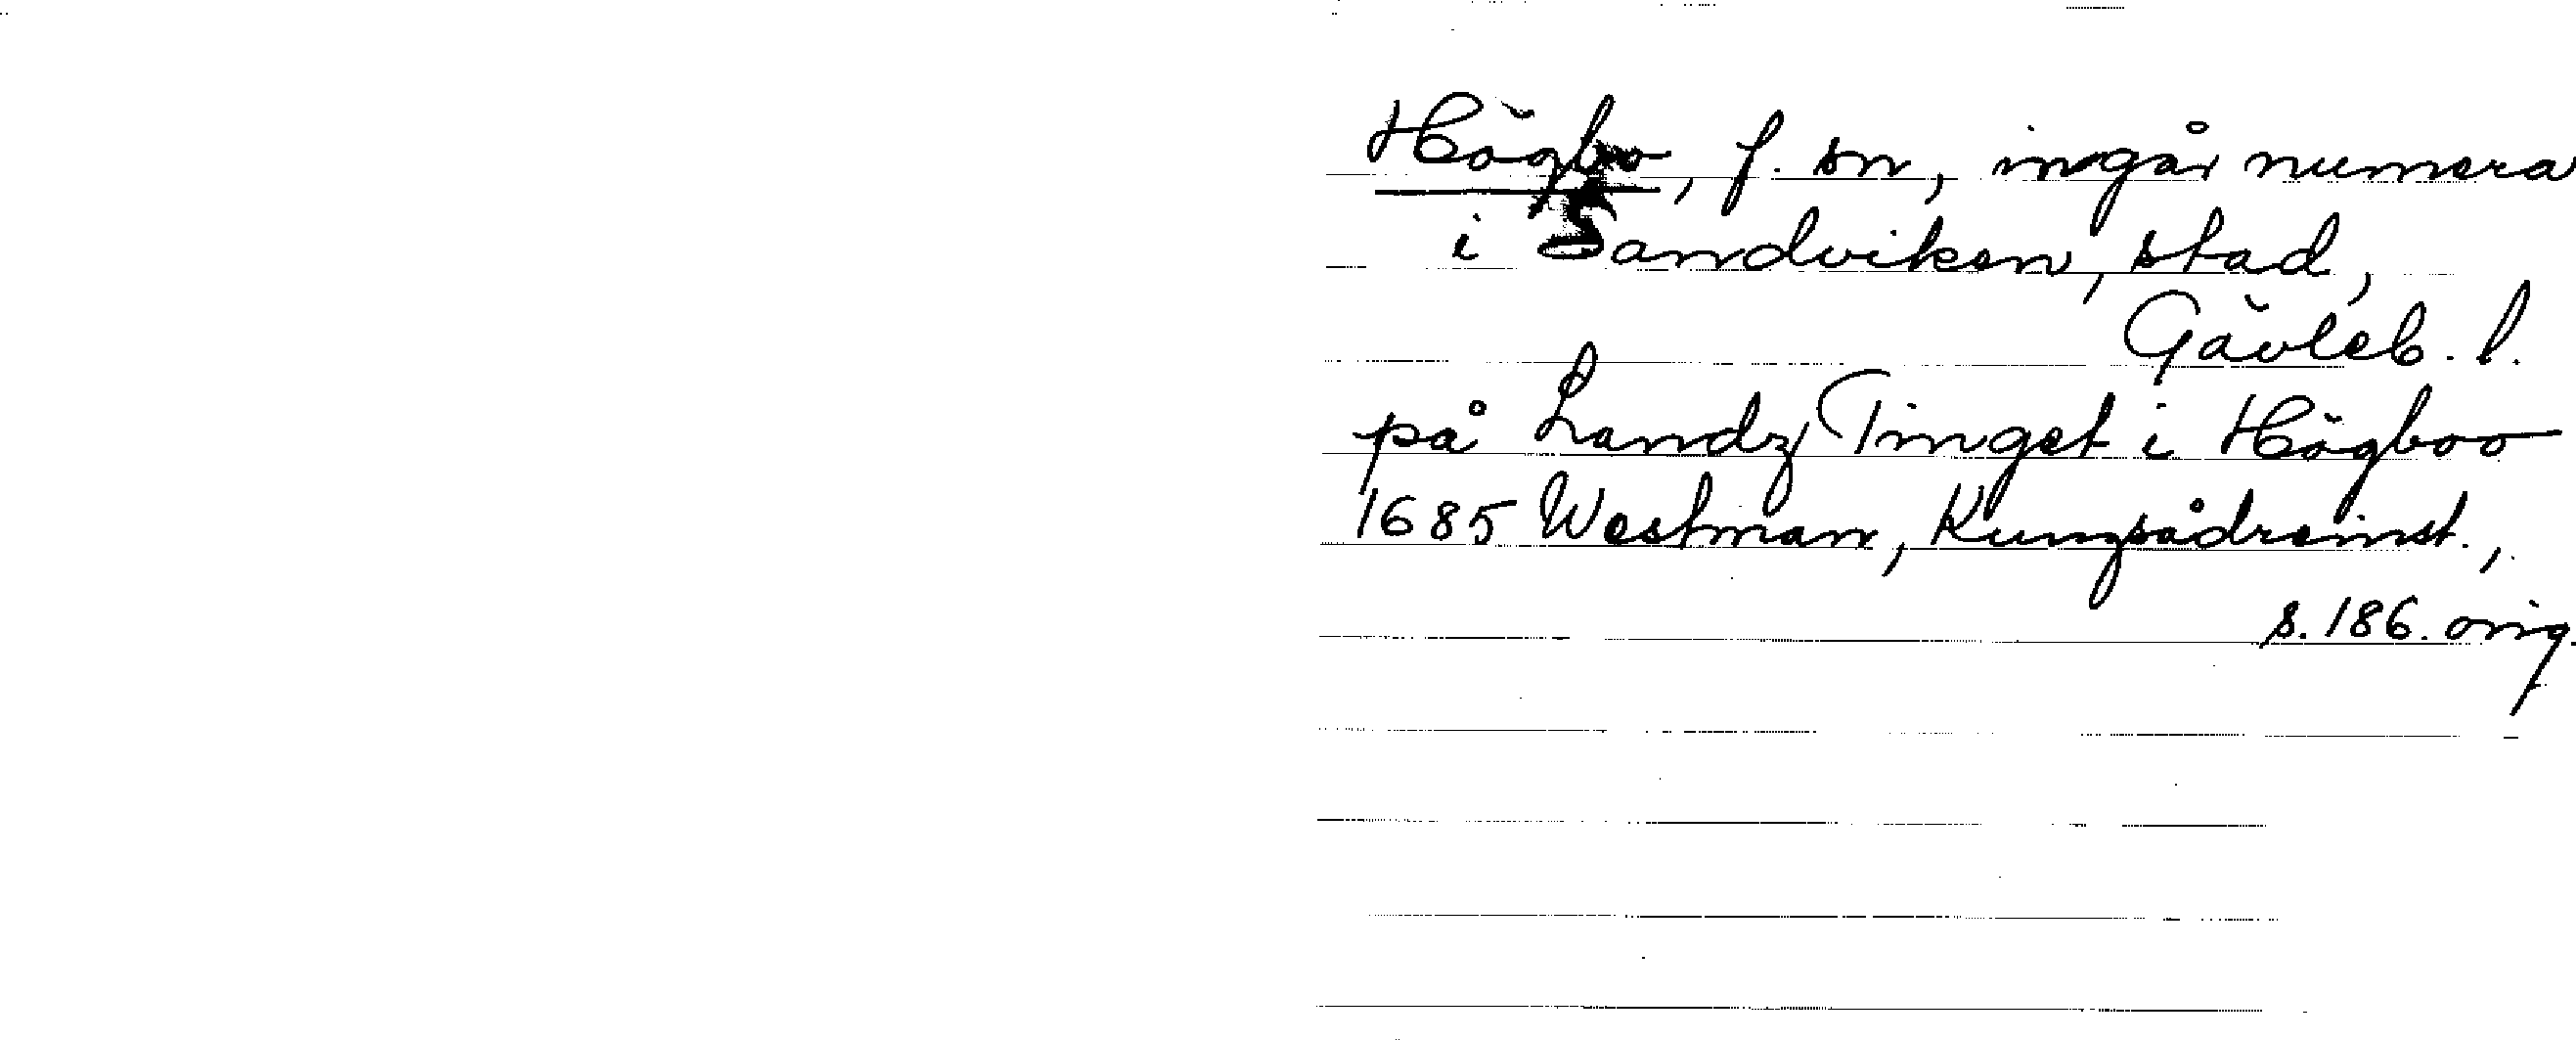 Högbo, f. sn, ingår numera
i Sandviken, stad,
Gävleb. l.
på Landz Tinget i Högboo
1685 Westman, Kungsådreinst.,
s. 186. orig.